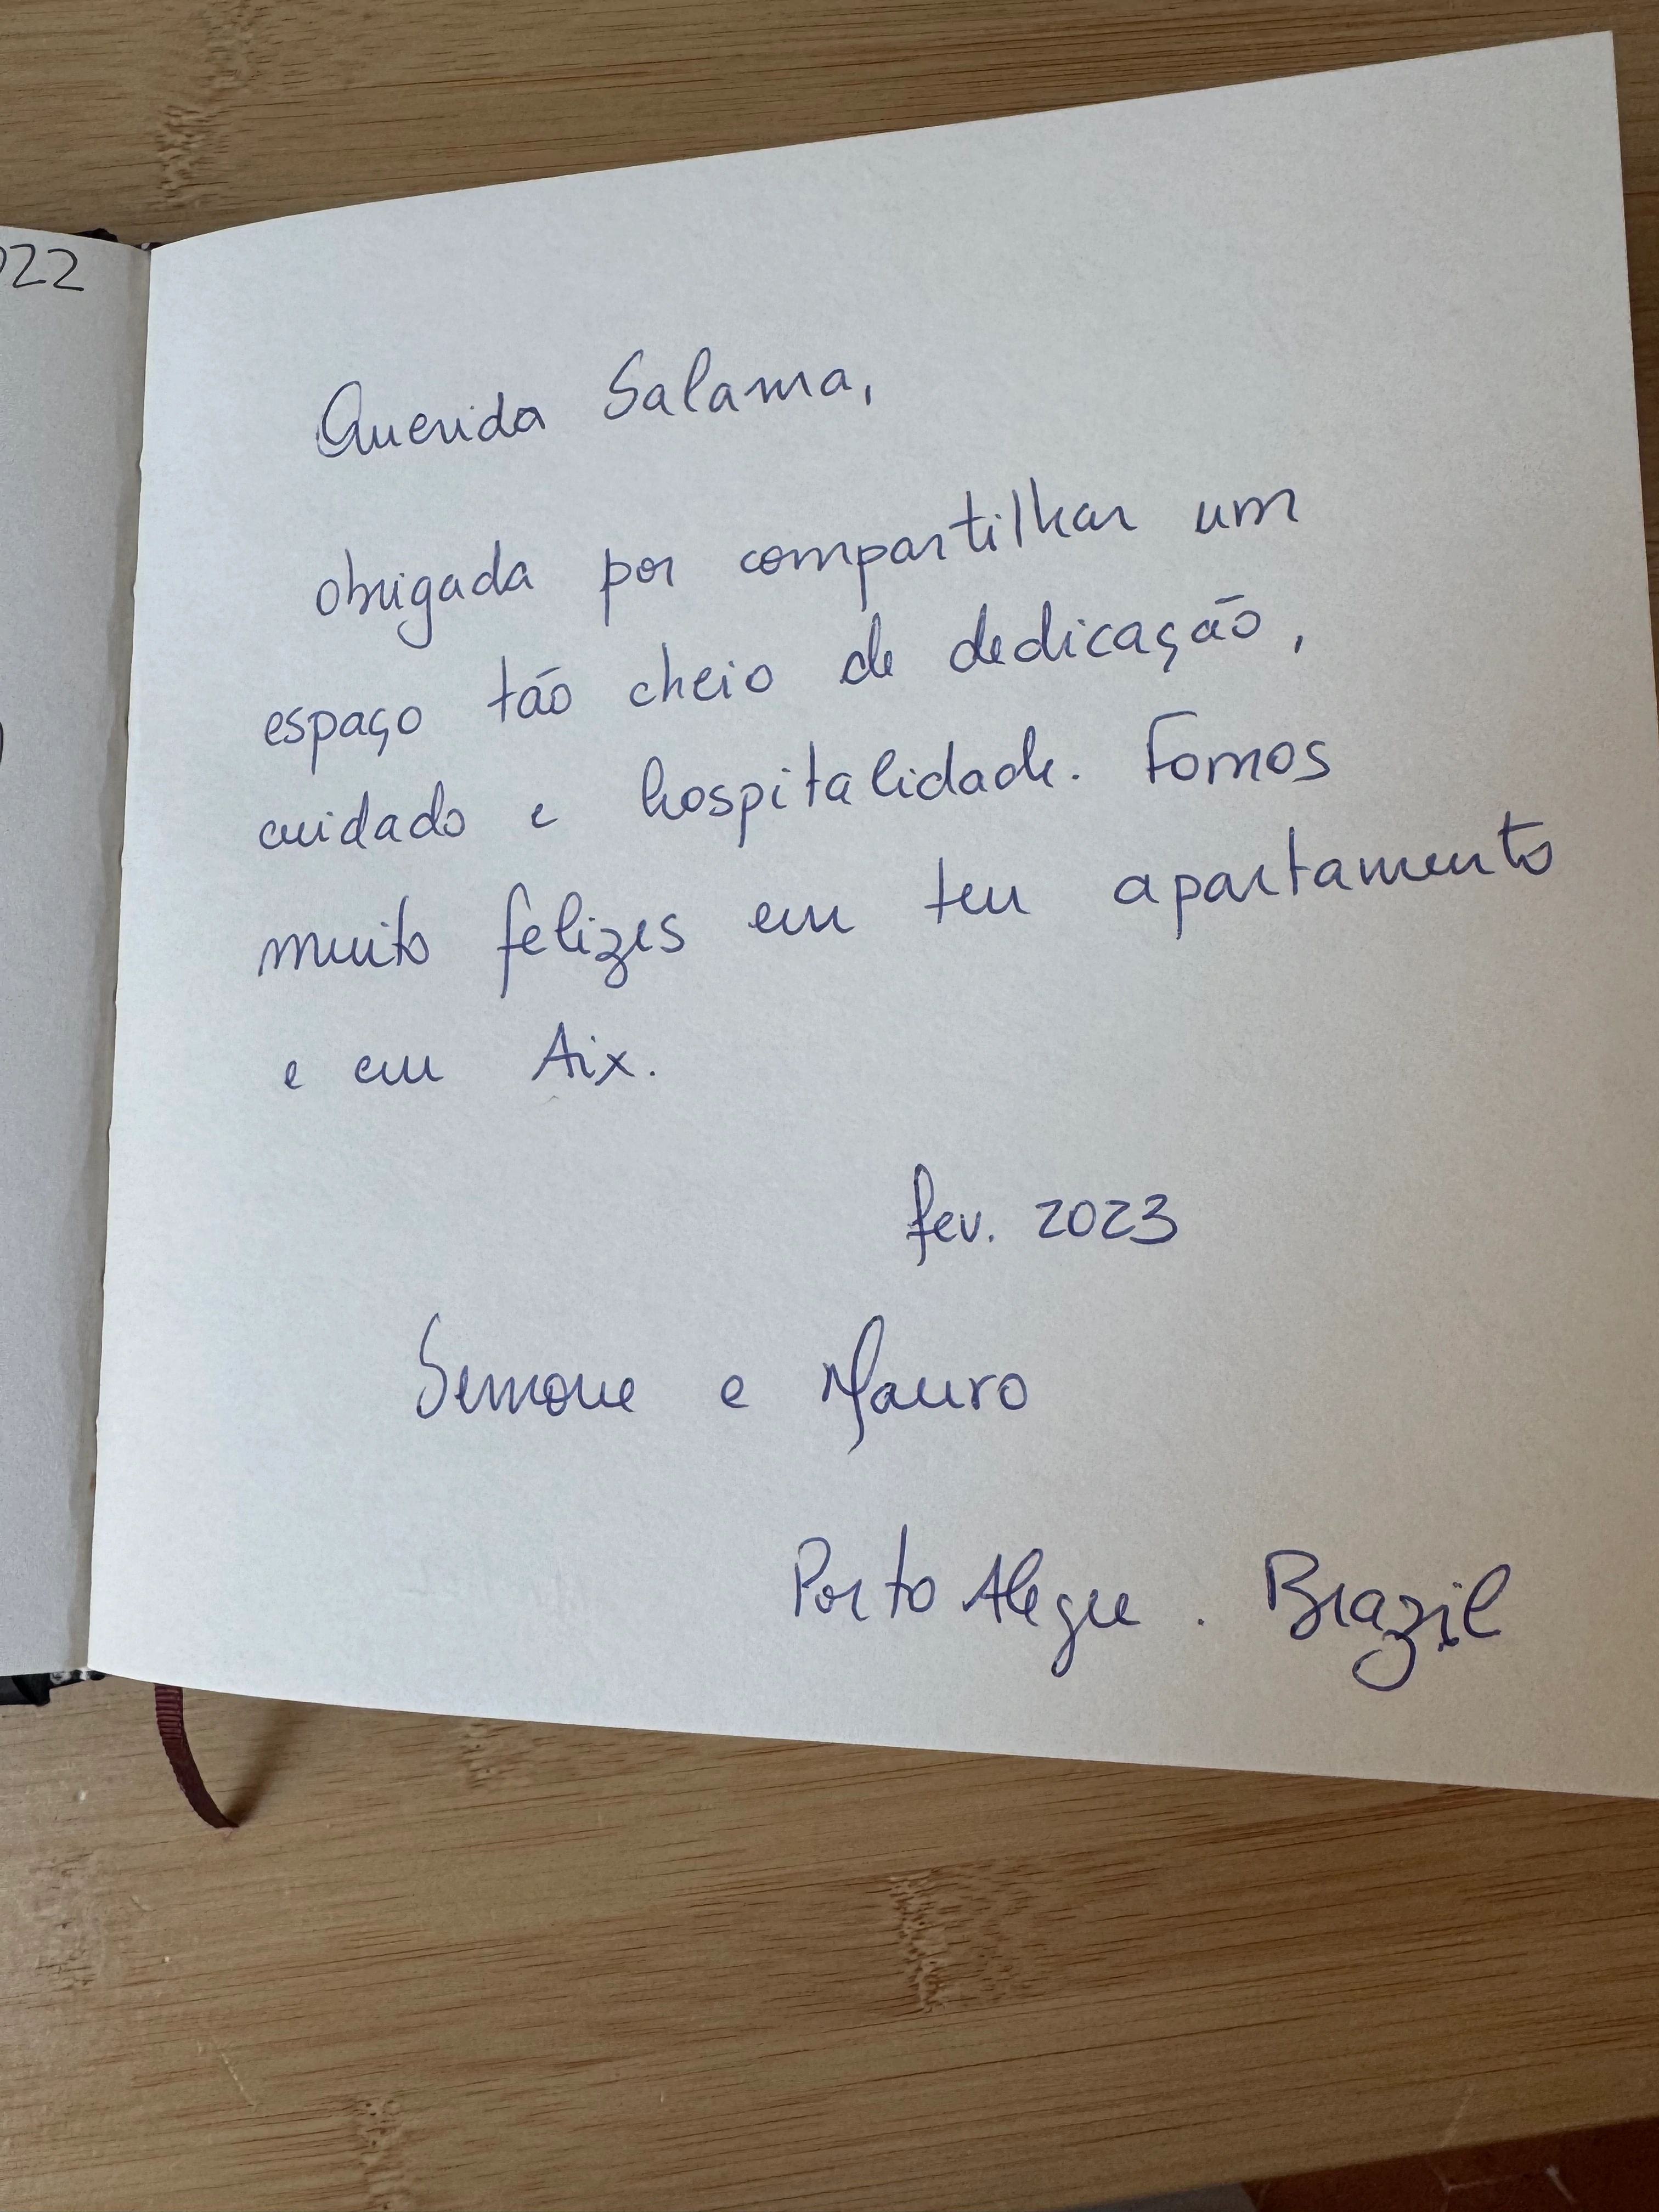 022
Querida Salama,
obrigada por compartilhar um
espaço tão cheio de dedicação,
cuidado e hospitalidade. Fomos
muito felizes em teu apartamento
e em Aix.
fev. 2023
Simone e Mauro
Porto Alegre. Brazil